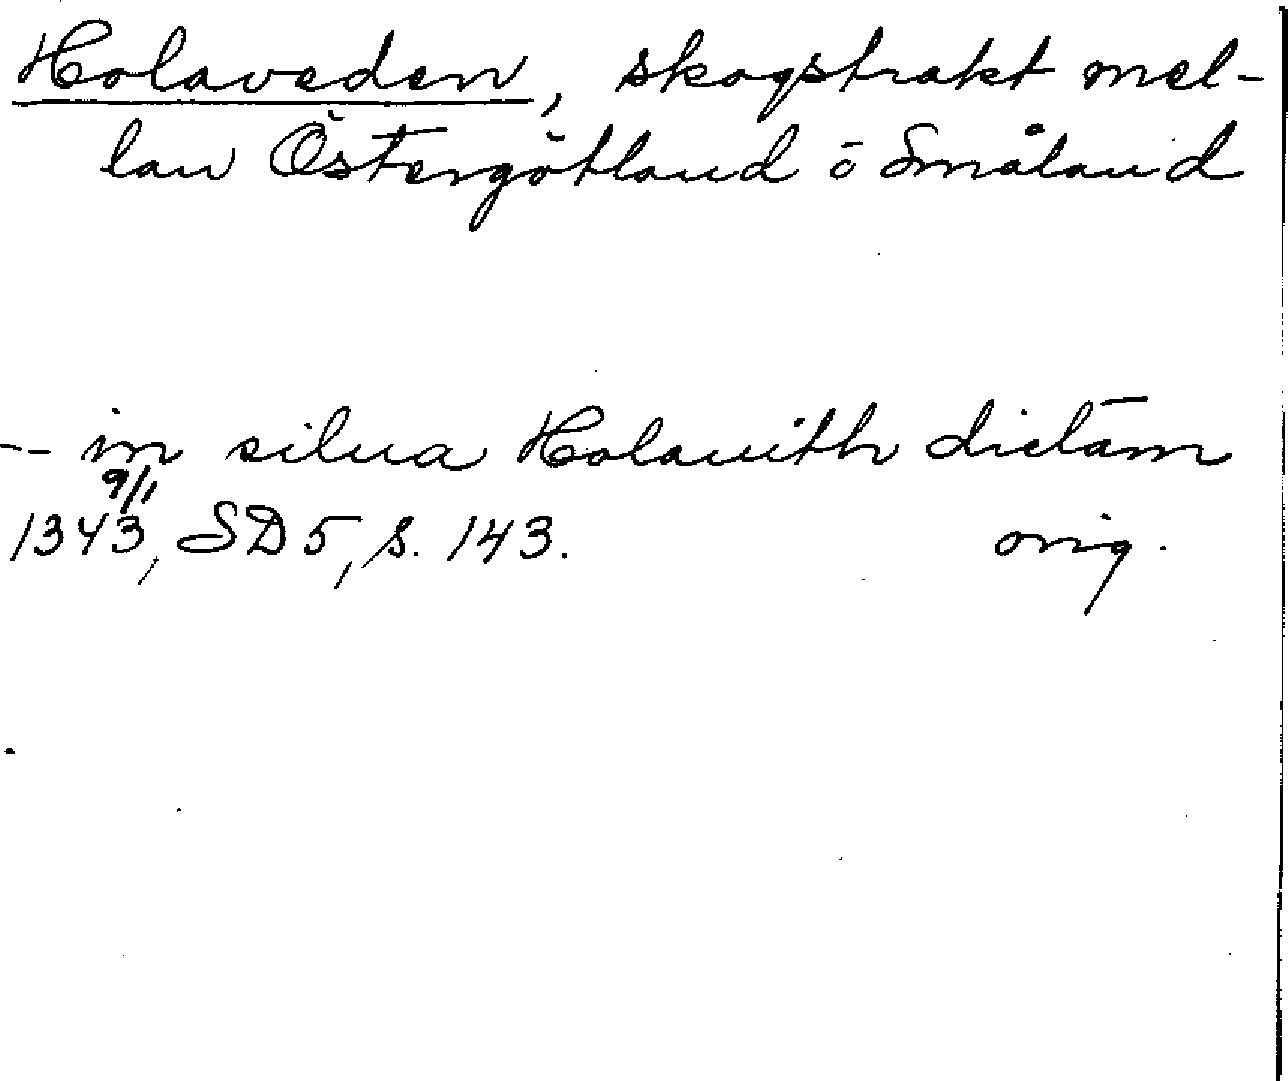 Holaveden, skogstrakt mel-
lan Östergötland ö Småland
-- in silua Holauith dictam
9/1
1343, SD 5, s. 143. orig.